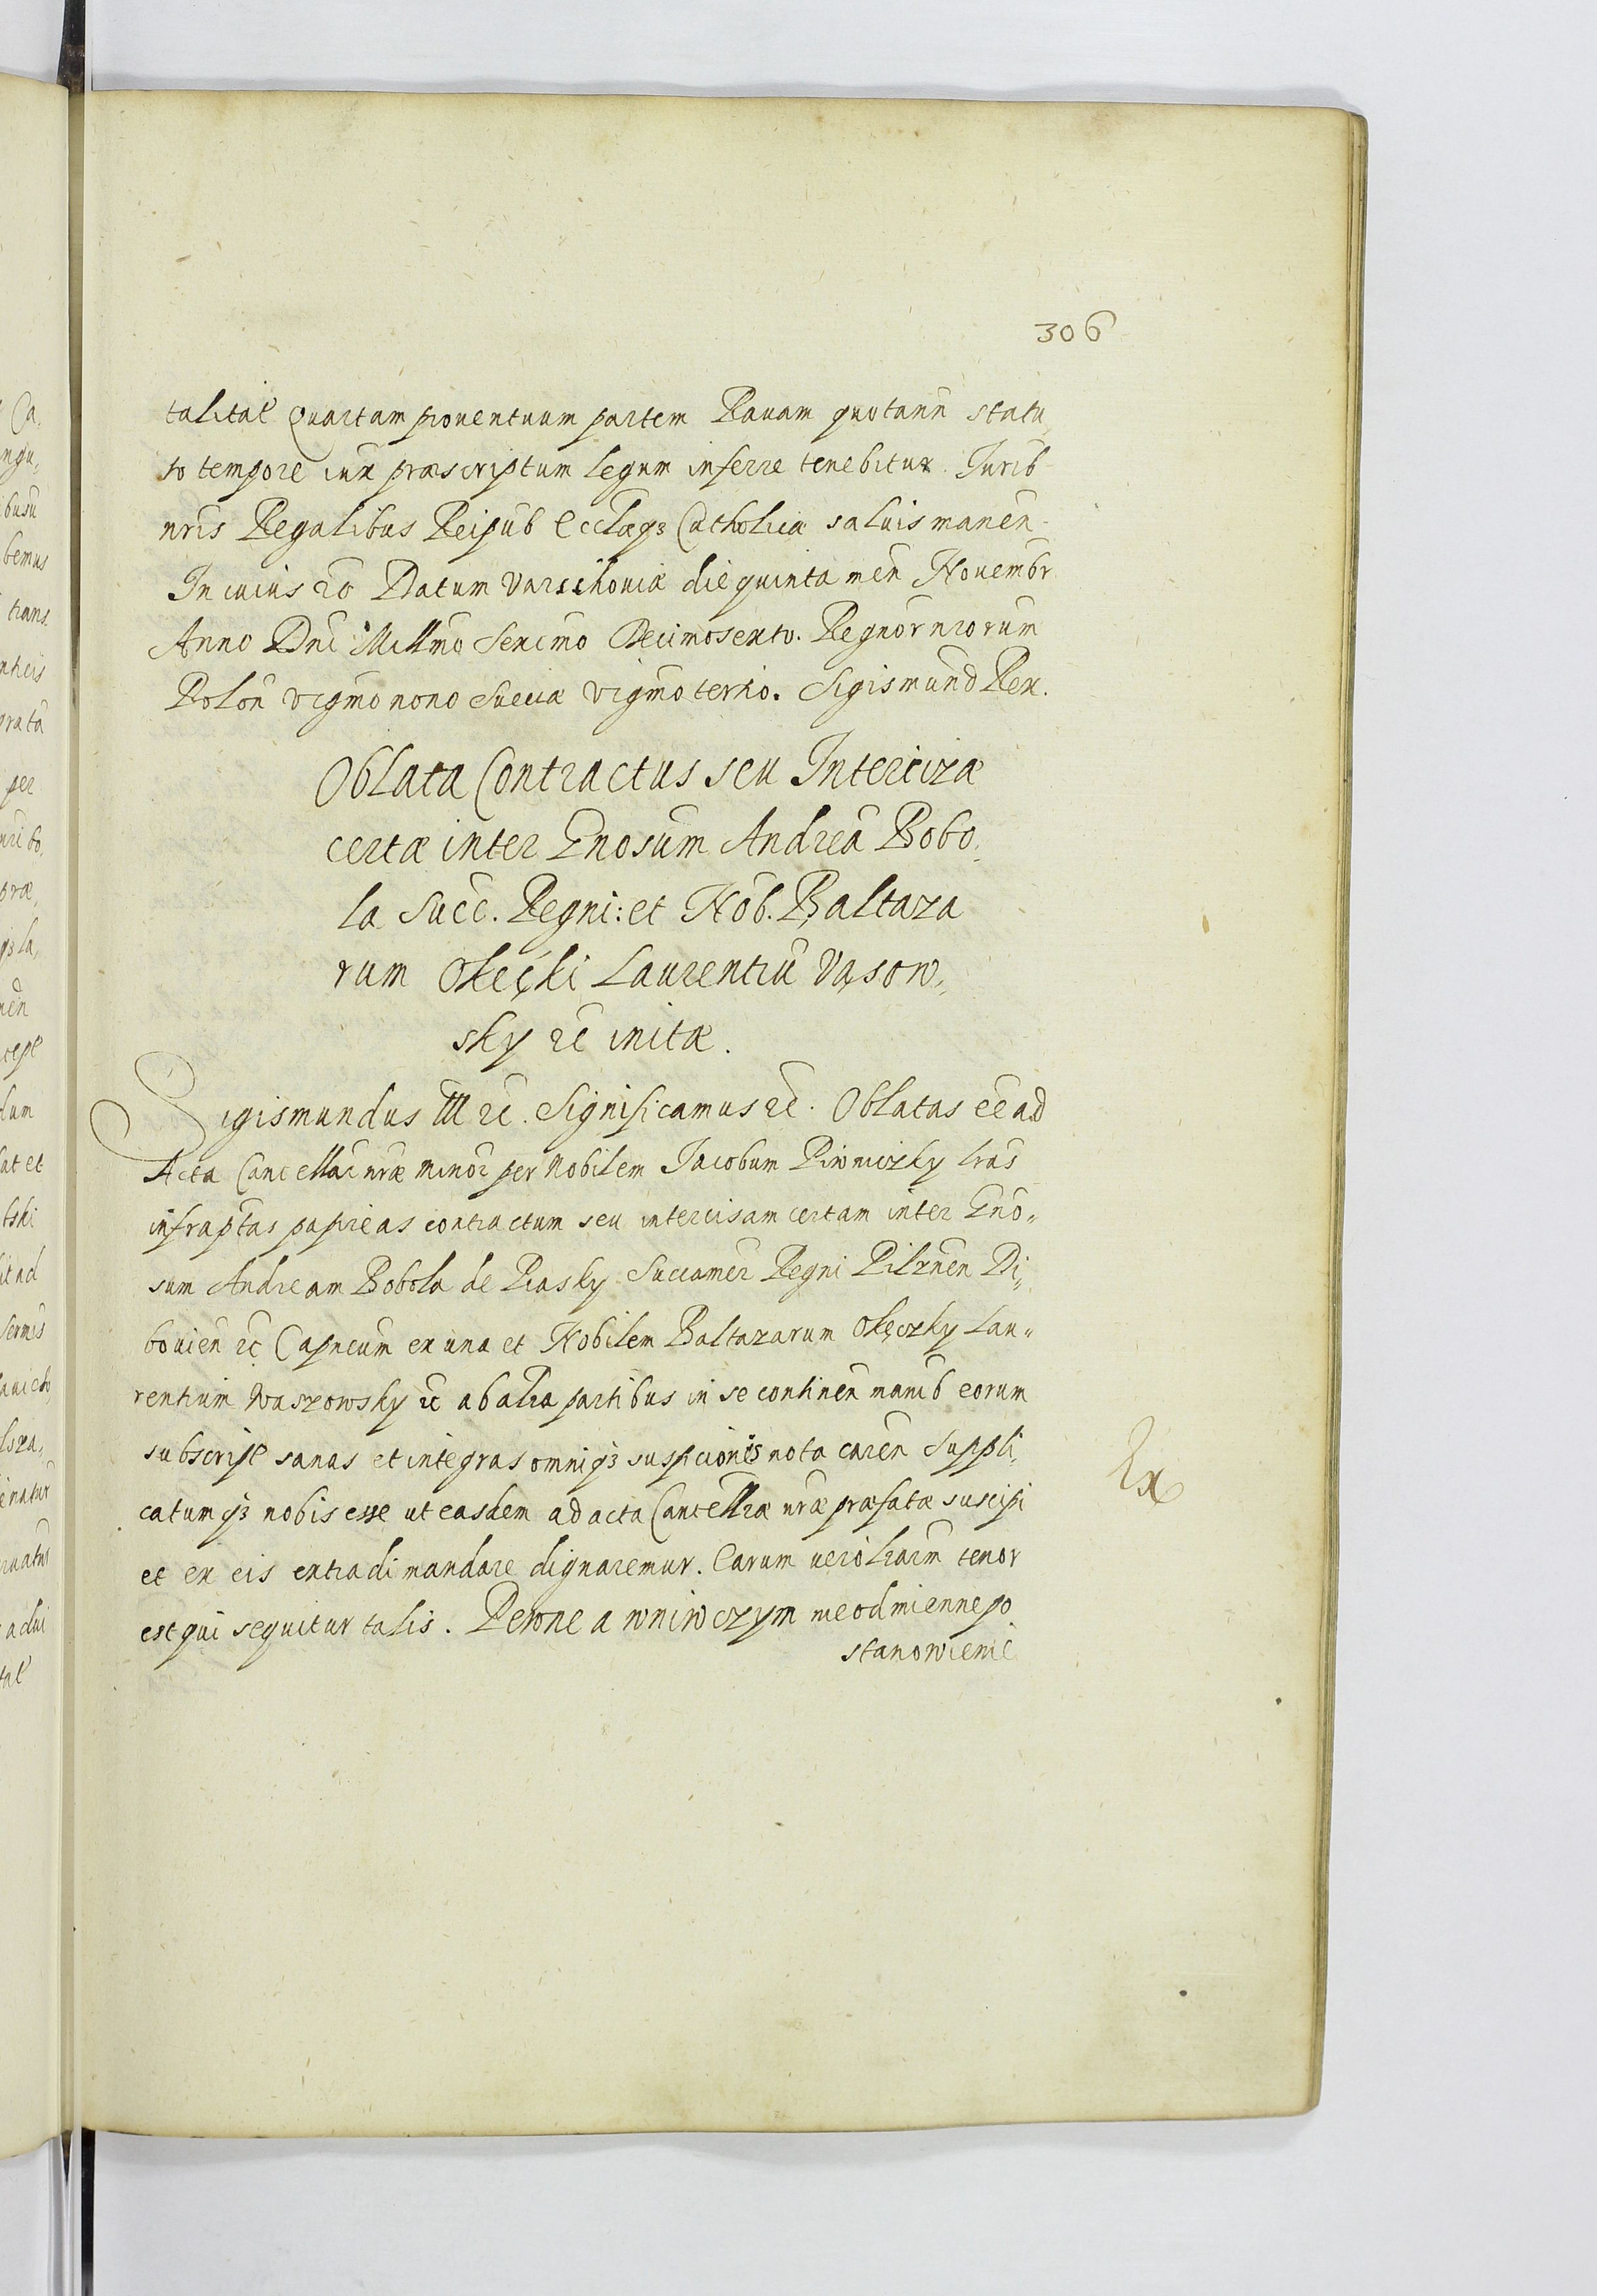 306
talitat Quartam proventuum partem Ravam quotann statu,
to tempore iux præscriptum legum inferre tenebitur. Jurib
nris Regalibus Reipub Ecclæqз Catholicæ salvis manen-
In cuius ro Datum Varschoviæ die quinta men Novembr
Anno Dni Millmo Sexcmo Decimosexto. Regnor nrorum
Polon vigmo nono Sueciæ vigmo tertio. Sigismund Rex.
Oblata Contractus seu Intercizæ
certæ inter Gnosum Andreā Bobo,
la Succ. Regni: et Nob. Baltaza
rum Okęcki Laurentiū Vąsow„
sky rc initæ.
Sigismundus III rc. Significamus rc. Oblatas eē ad
Acta Cancellar nræ minor per Nobilem Jacobum Piwniczky lras
infraptas papireas contractum seu intercisam certam inter Gno„
sum Andream Bobola de Piasky Succamer Regni Pilznen Di„
bovien rc Capneum ex una et Nobilem Baltazarum Okęczky Lau„
rentium Waszowsky rc ab alia partibus in se continen manib eorum
subscript sanas et integras omniqз suspicionis nota caren Suppli,
catumqз nobis esse ut easdem ad acta Cancellriæ nræ præfatæ suscipi
et ex eis extradi mandare dignaremur. Earum vero lrarm tenor
est qui sequitur talis. Pewne a wniwczym nieodmienne po
stanowienie
Ex